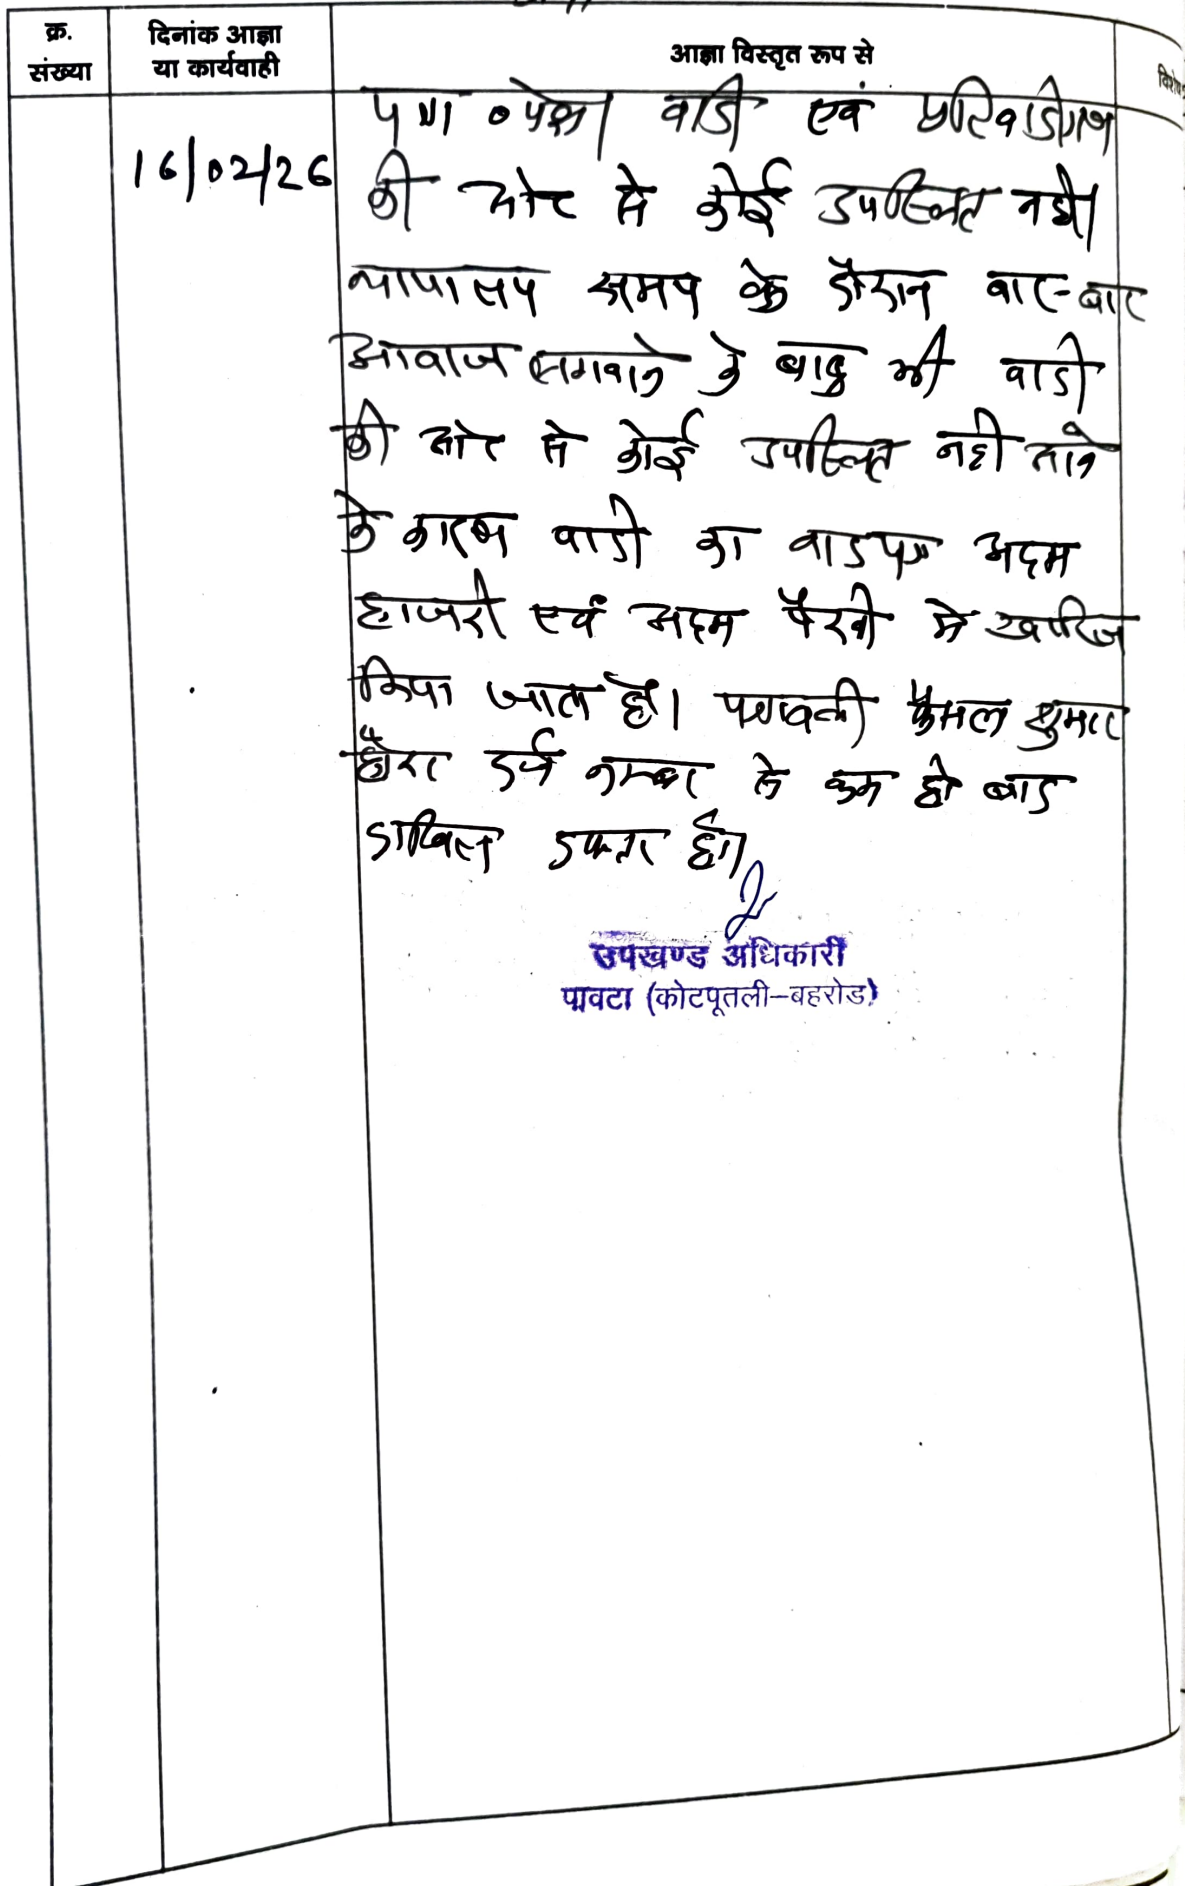 क्र. संख्या
दिनांक आज्ञा या कार्यवाही
आज्ञा विस्तृत रूप से
पत्रा० पेश। वादी एवं प्रतिवादीगण
16/02/26
की ओर से कोई उपस्थित नही।
न्यायालय समय के दौरान बार-बार
आवाज लगवाने के बाद भी वादी
की ओर से कोई उपस्थित नही आने
के कारण वादी का वादपत्र अदम
हाजरी एवं अदम पैरवी मे खारिज
किया जाता है। पत्रावली फैसल शुमार
होकर दर्ज नम्बर से कम हो बाद
दाखिल दफ्तर हो।
उपखण्ड अधिकारी
पावटा (कोटपूतली–बहरोड)